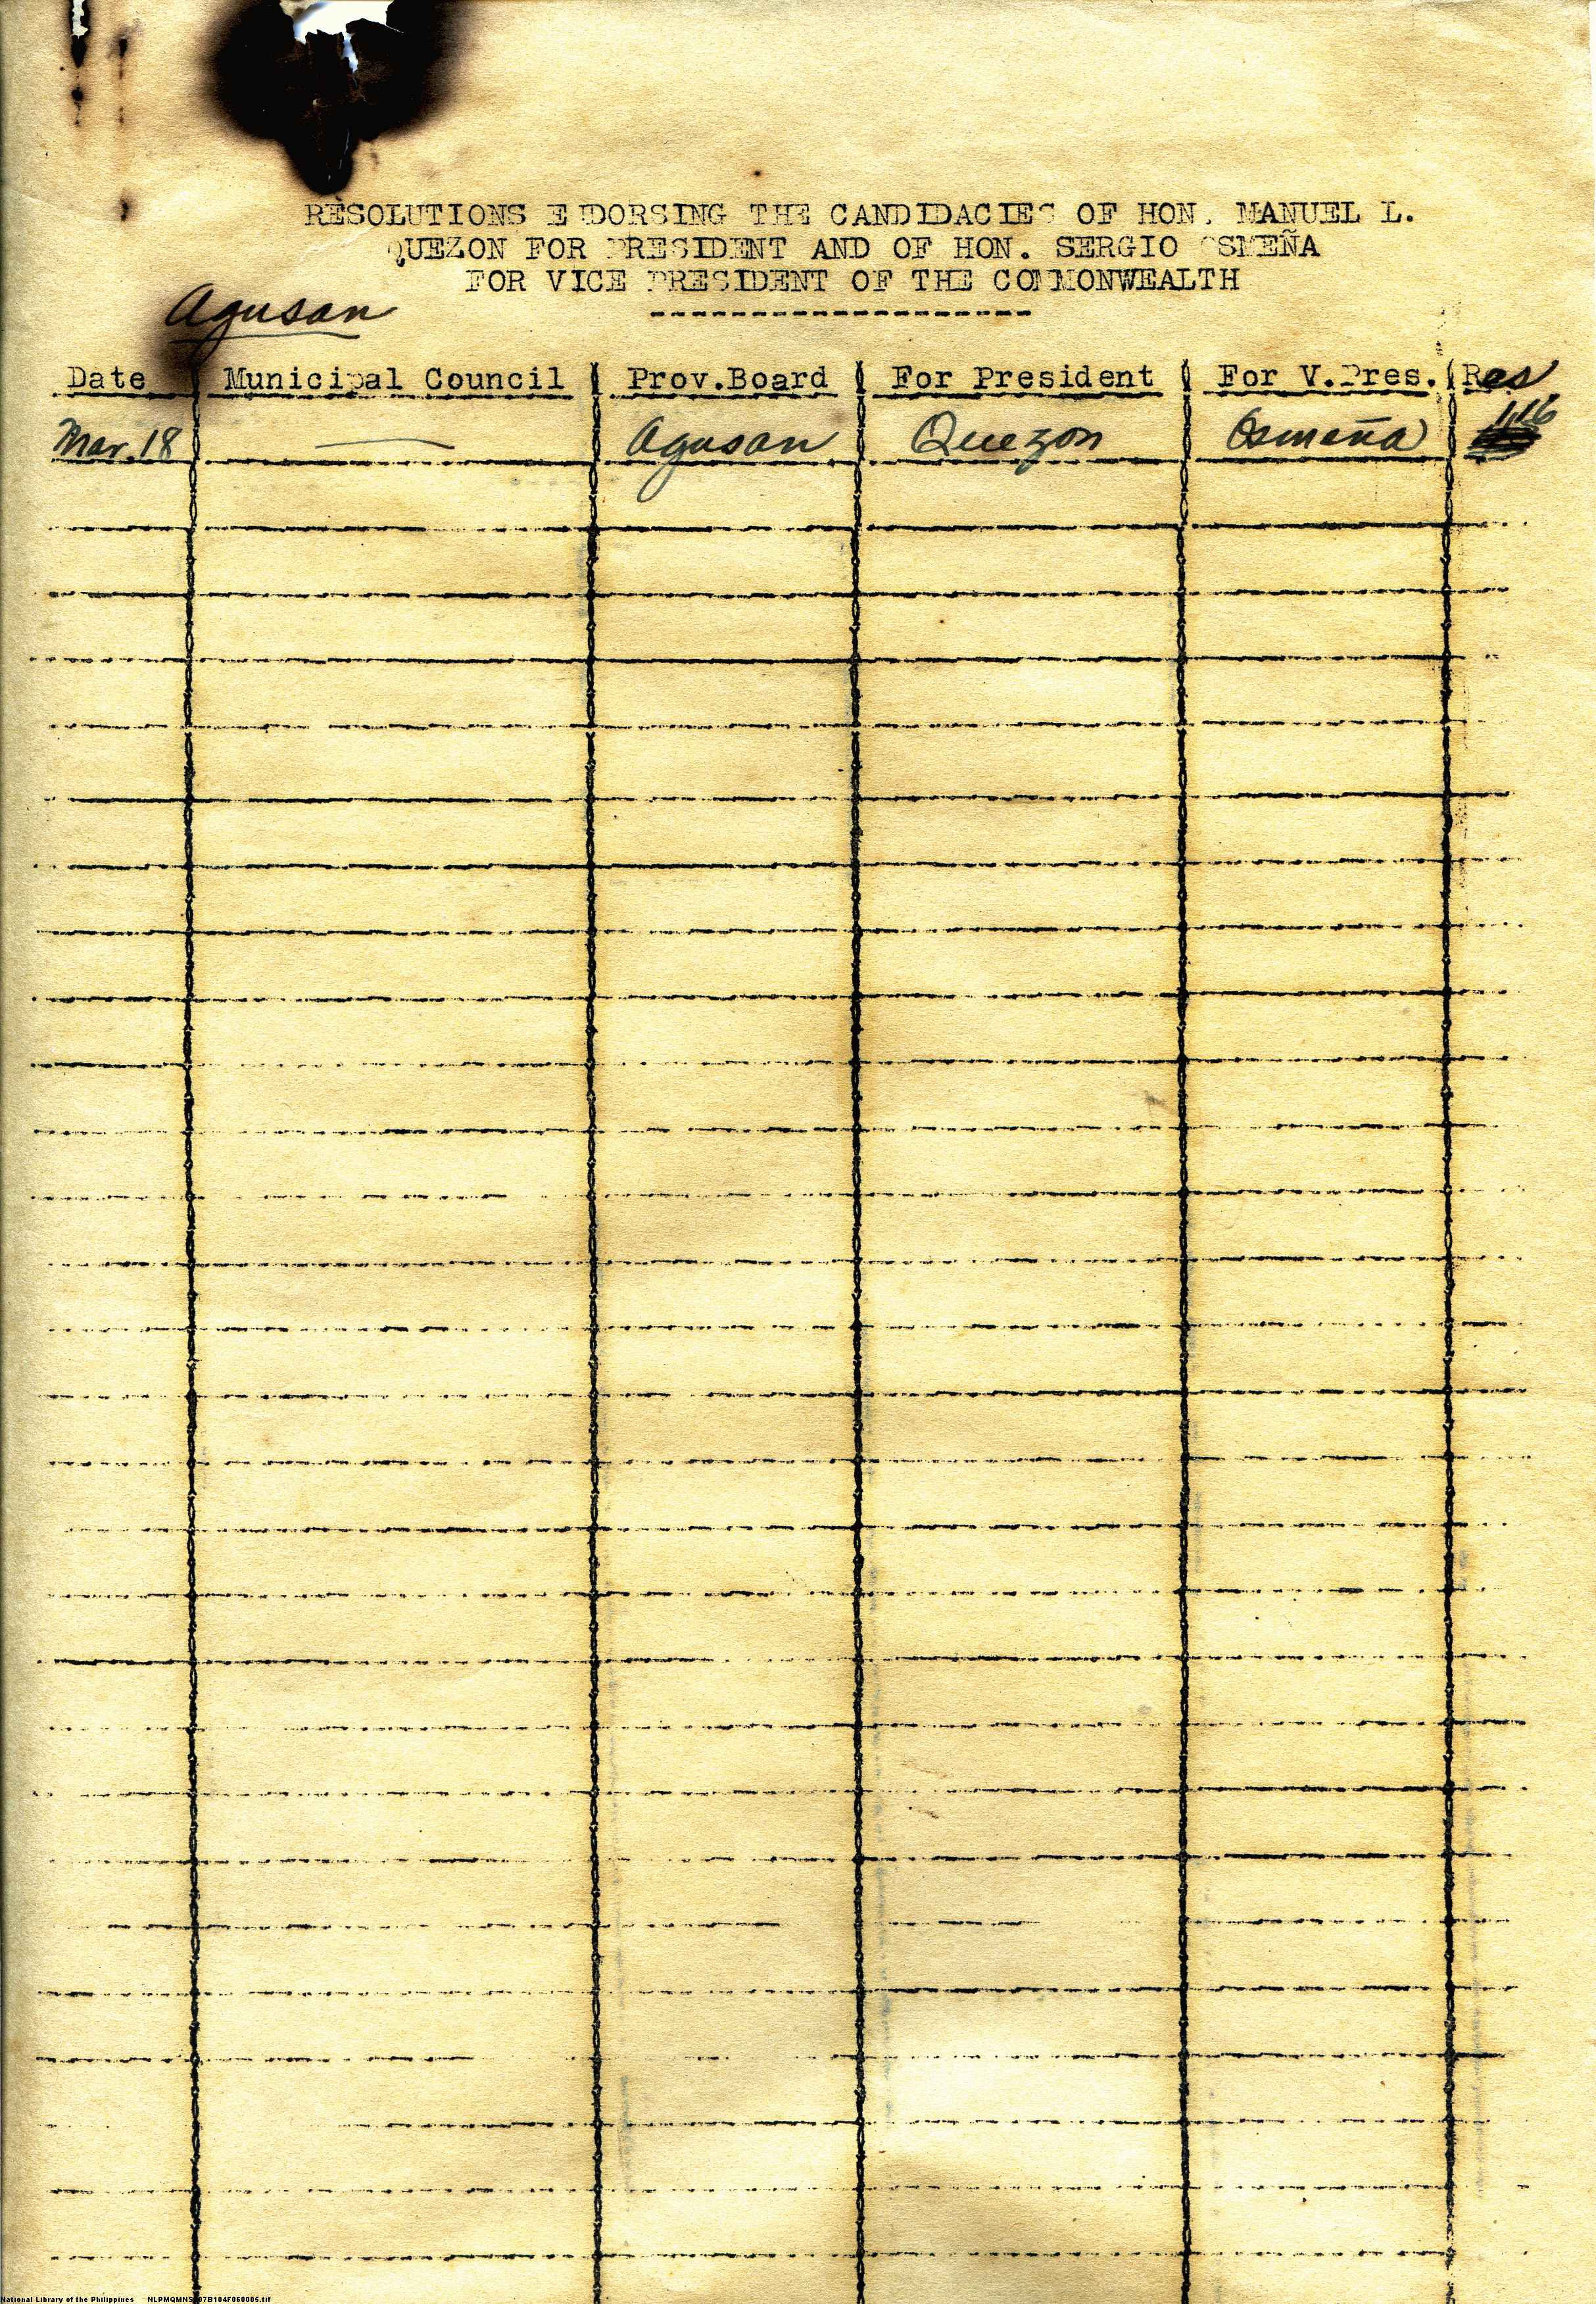 RESOLUTIONS ENDORSING THE CANDIDACIES OF HON. MANUEL L.
QUEZON FOR PRESIDENT AND OF HON. SERGIO OSMEÑA
FOR VICE PRESIDENT OF THE COMMONWEALTH
Agusan
Date Municipal Council Prov.Board For President For V.Pres. Res
Mar. 18 Agusan Quezon Osmeña 1116
National Library of the Philippines